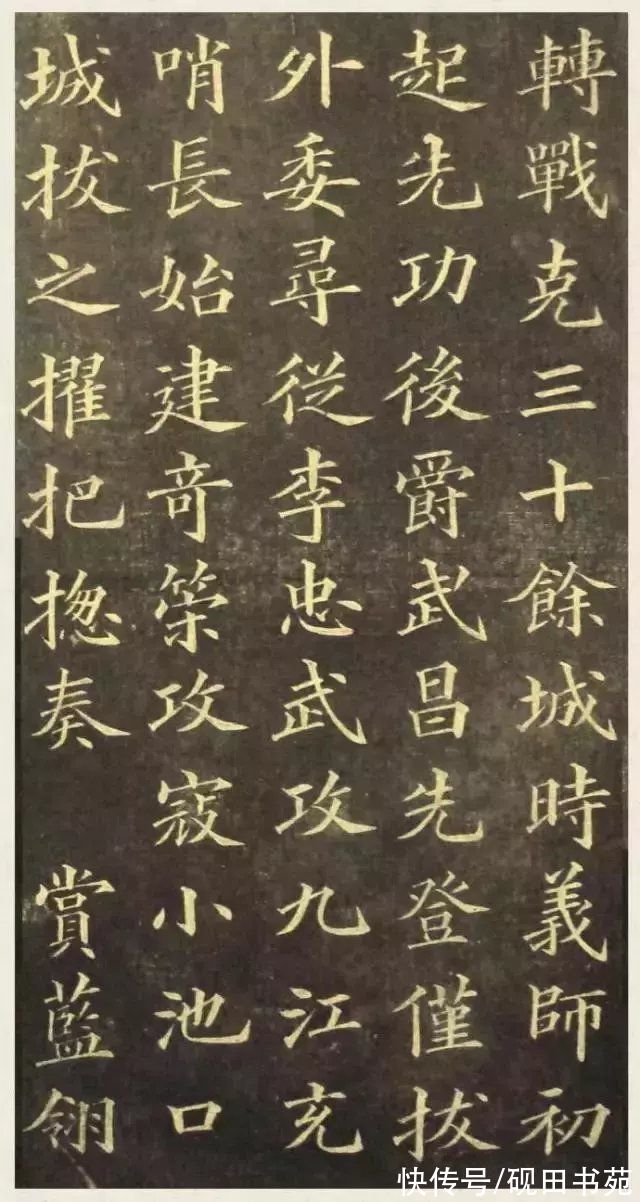 轉戰克三十餘城時義師初
起先功後爵武昌先登僅拔
外委尋從李忠武攻九江充
哨長始建奇策攻寇小池口
城拔之擢把揔奏 賞藍翎
快传号/砚田书苑